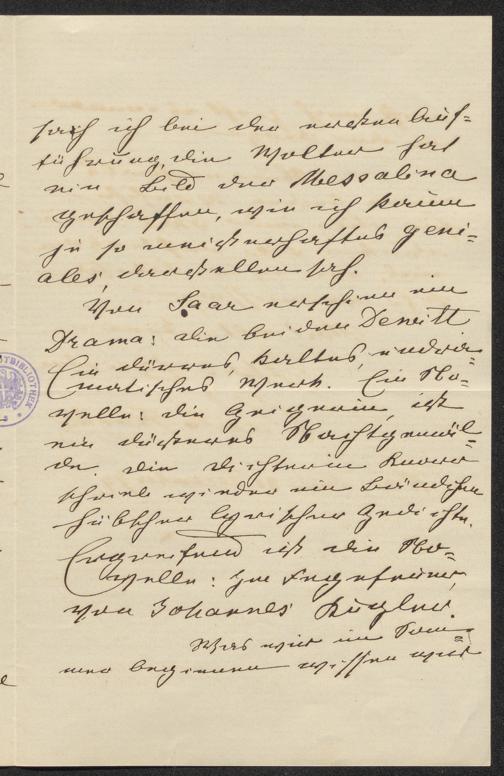 sah ich bei der ersten Auf=
führung, die Wolter hat
ein Bild der Messalina
geschaffen, wie ich kaum
je so meisterhaftes geni=
ales, darstellen sah.
Von Saar erschien ein
Drama: die beiden Dewitt
Ein dürres, kaltes, undra=
matisches Werk. Ein No=
velle: die Geigerin, ist
ein düsteres Nachtgemäl=
de. Die Dichterin Knorr
schrieb wieder ein Bändchen
hübscher lyrischer Gedichte.
Ergreifend ist die No=
velle: Im Fegefeuer,
von Johannes Kugler.
Was wir im Som=
mer beginnen wissen wir